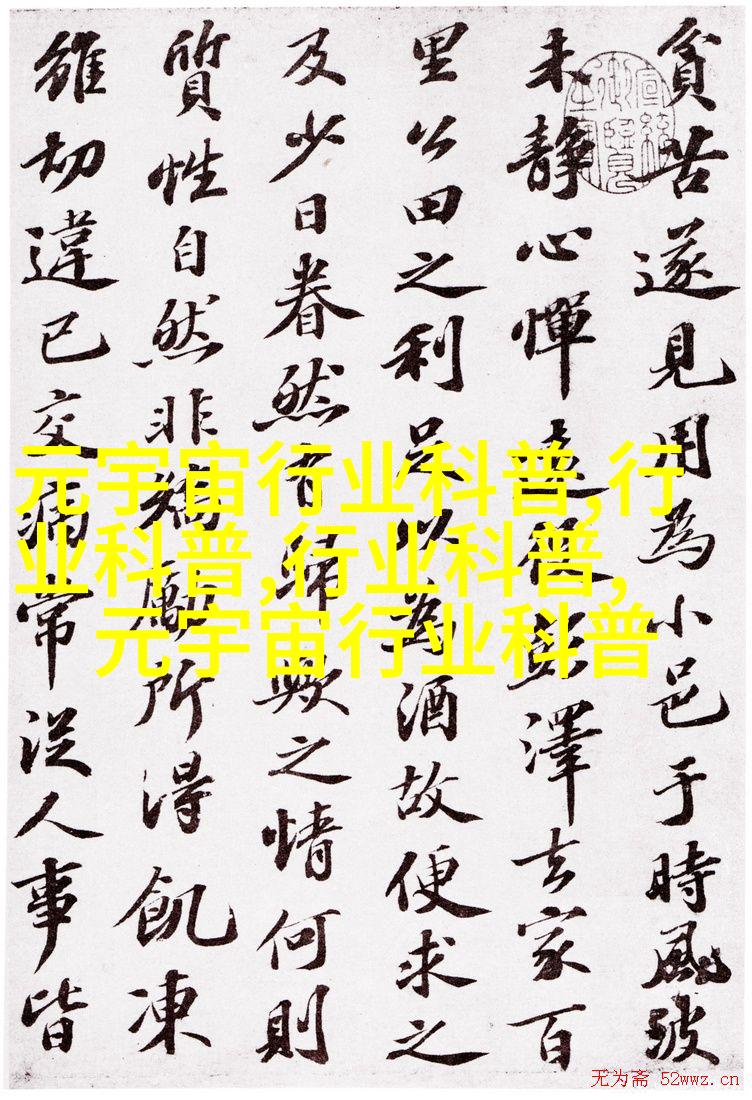 貧苦遂見用為小邑于時風波
未靜心憚遠役彭澤去家百
里公田之利足以為酒故便求之
及少日眷然有歸歟之情何則
質性自然非矯勵所得飢凍
雖切違己交病常從人事皆
元宇宙行业科普,行
业科普,行业科普,
元宇宙行业科普
无为斋 52wwz.cn